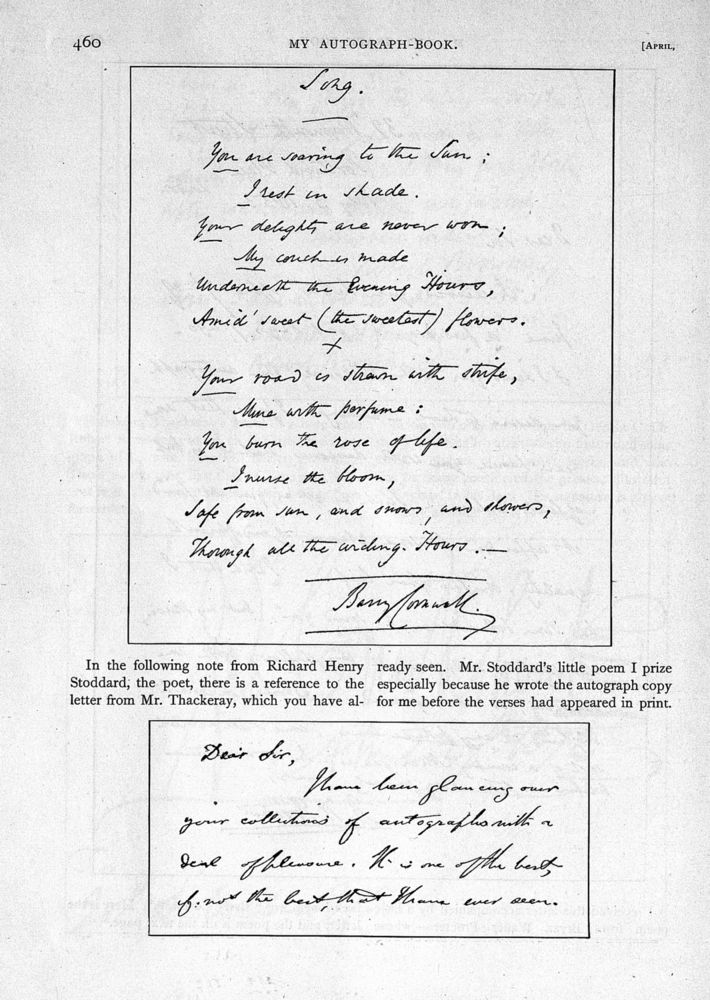 460 MY AUTOGRAPH-BOOK. [APRIL,
Song.
You are soaring to the Sun;
I rest in shade.
Your delights are never won;
My couch is made
Underneath the Evening Hours,
Amid' sweet (the sweetest) flowers.
+
Your road is strewn with strife,
Mine with perfume:
You burn the rose of life.
I nurse the bloom,
Safe from sun, and snows, and showers,
Thorough all the Hours. —
Barry Cornwall.
In the following note from Richard Henry
Stoddard, the poet, there is a reference to the
letter from Mr. Thackeray, which you have al-
ready seen. Mr. Stoddard's little poem I prize
especially because he wrote the autograph copy
for me before the verses had appeared in print.
Dear Sir,
I have been glancing over
your collections of autographs with a
deal of pleasure. It is one of the best,
if not the best, that I have ever seen.